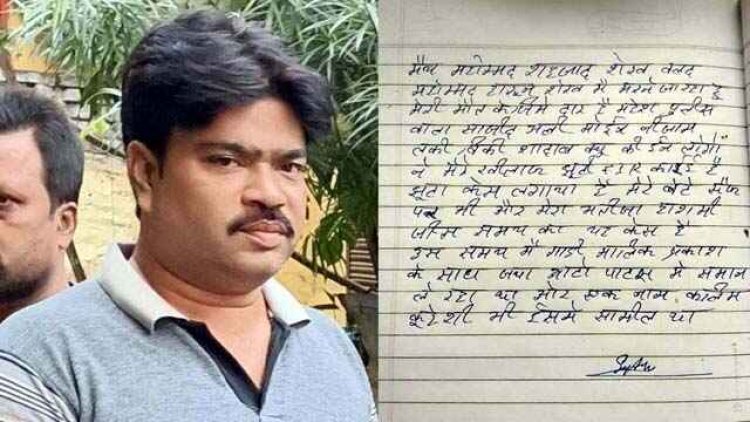 मैं मोहम्मद शहजाद शेख वल्द
मोहम्मद हारून शेख मैं मरने जा रहा हूं
मेरी मौत के जिमे दार है महेश पुलीस
वाला साजीद अली मोईन नीजाम
लकी विकी शादाब इन लोगों
ने मेरे खीलाफ झुठी FIR काराई है
झुठा केस लगाया है मेरे बेटे
पर भी और मेरा भतीजा हाशमी
जीस समय का यह केस है
उस समय मैं गाडी मालिक प्रकाश
के साथ जया ओटो पाटस मे समान
ले रहा था और एक नाम कालिम
कुरेशी भी ईसमे सामील था